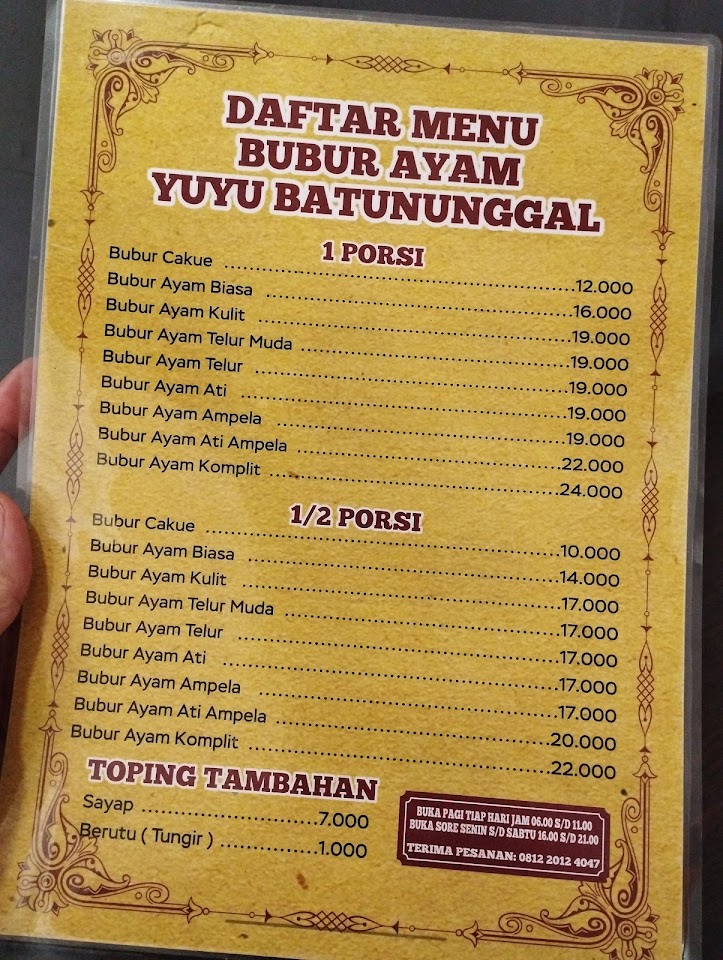 DAFTAR MENU
BUBUR AYAM
YUYU BATUNUNGGAL
1 PORSI
Bubur Cakue ................................................12.000
Bubur Ayam Biasa ................................................16.000
Bubur Ayam Kulit ................................................19.000
Bubur Ayam Telur Muda ................................................19.000
Bubur Ayam Telur ................................................19.000
Bubur Ayam Ati ................................................19.000
Bubur Ayam Ampela ................................................19.000
Bubur Ayam Ati Ampela ................................................22.000
Bubur Ayam Komplit ................................................24.000
1/2 PORSI
Bubur Cakue ................................................10.000
Bubur Ayam Biasa ................................................14.000
Bubur Ayam Kulit ................................................17.000
Bubur Ayam Telur Muda ................................................17.000
Bubur Ayam Telur ................................................17.000
Bubur Ayam Ati ................................................17.000
Bubur Ayam Ampela ................................................17.000
Bubur Ayam Ati Ampela ................................................20.000
Bubur Ayam Komplit ................................................22.000
TOPING TAMBAHAN
Sayap ..........................7.000
Berutu ( Tungir ) ..................1.000
BUKA PAGI TIAP HARI JAM 06.00 S/D 11.00
BUKA SORE SENIN S/D SABTU 16.00 S/D 21.00
TERIMA PESANAN: 0812 2012 4047